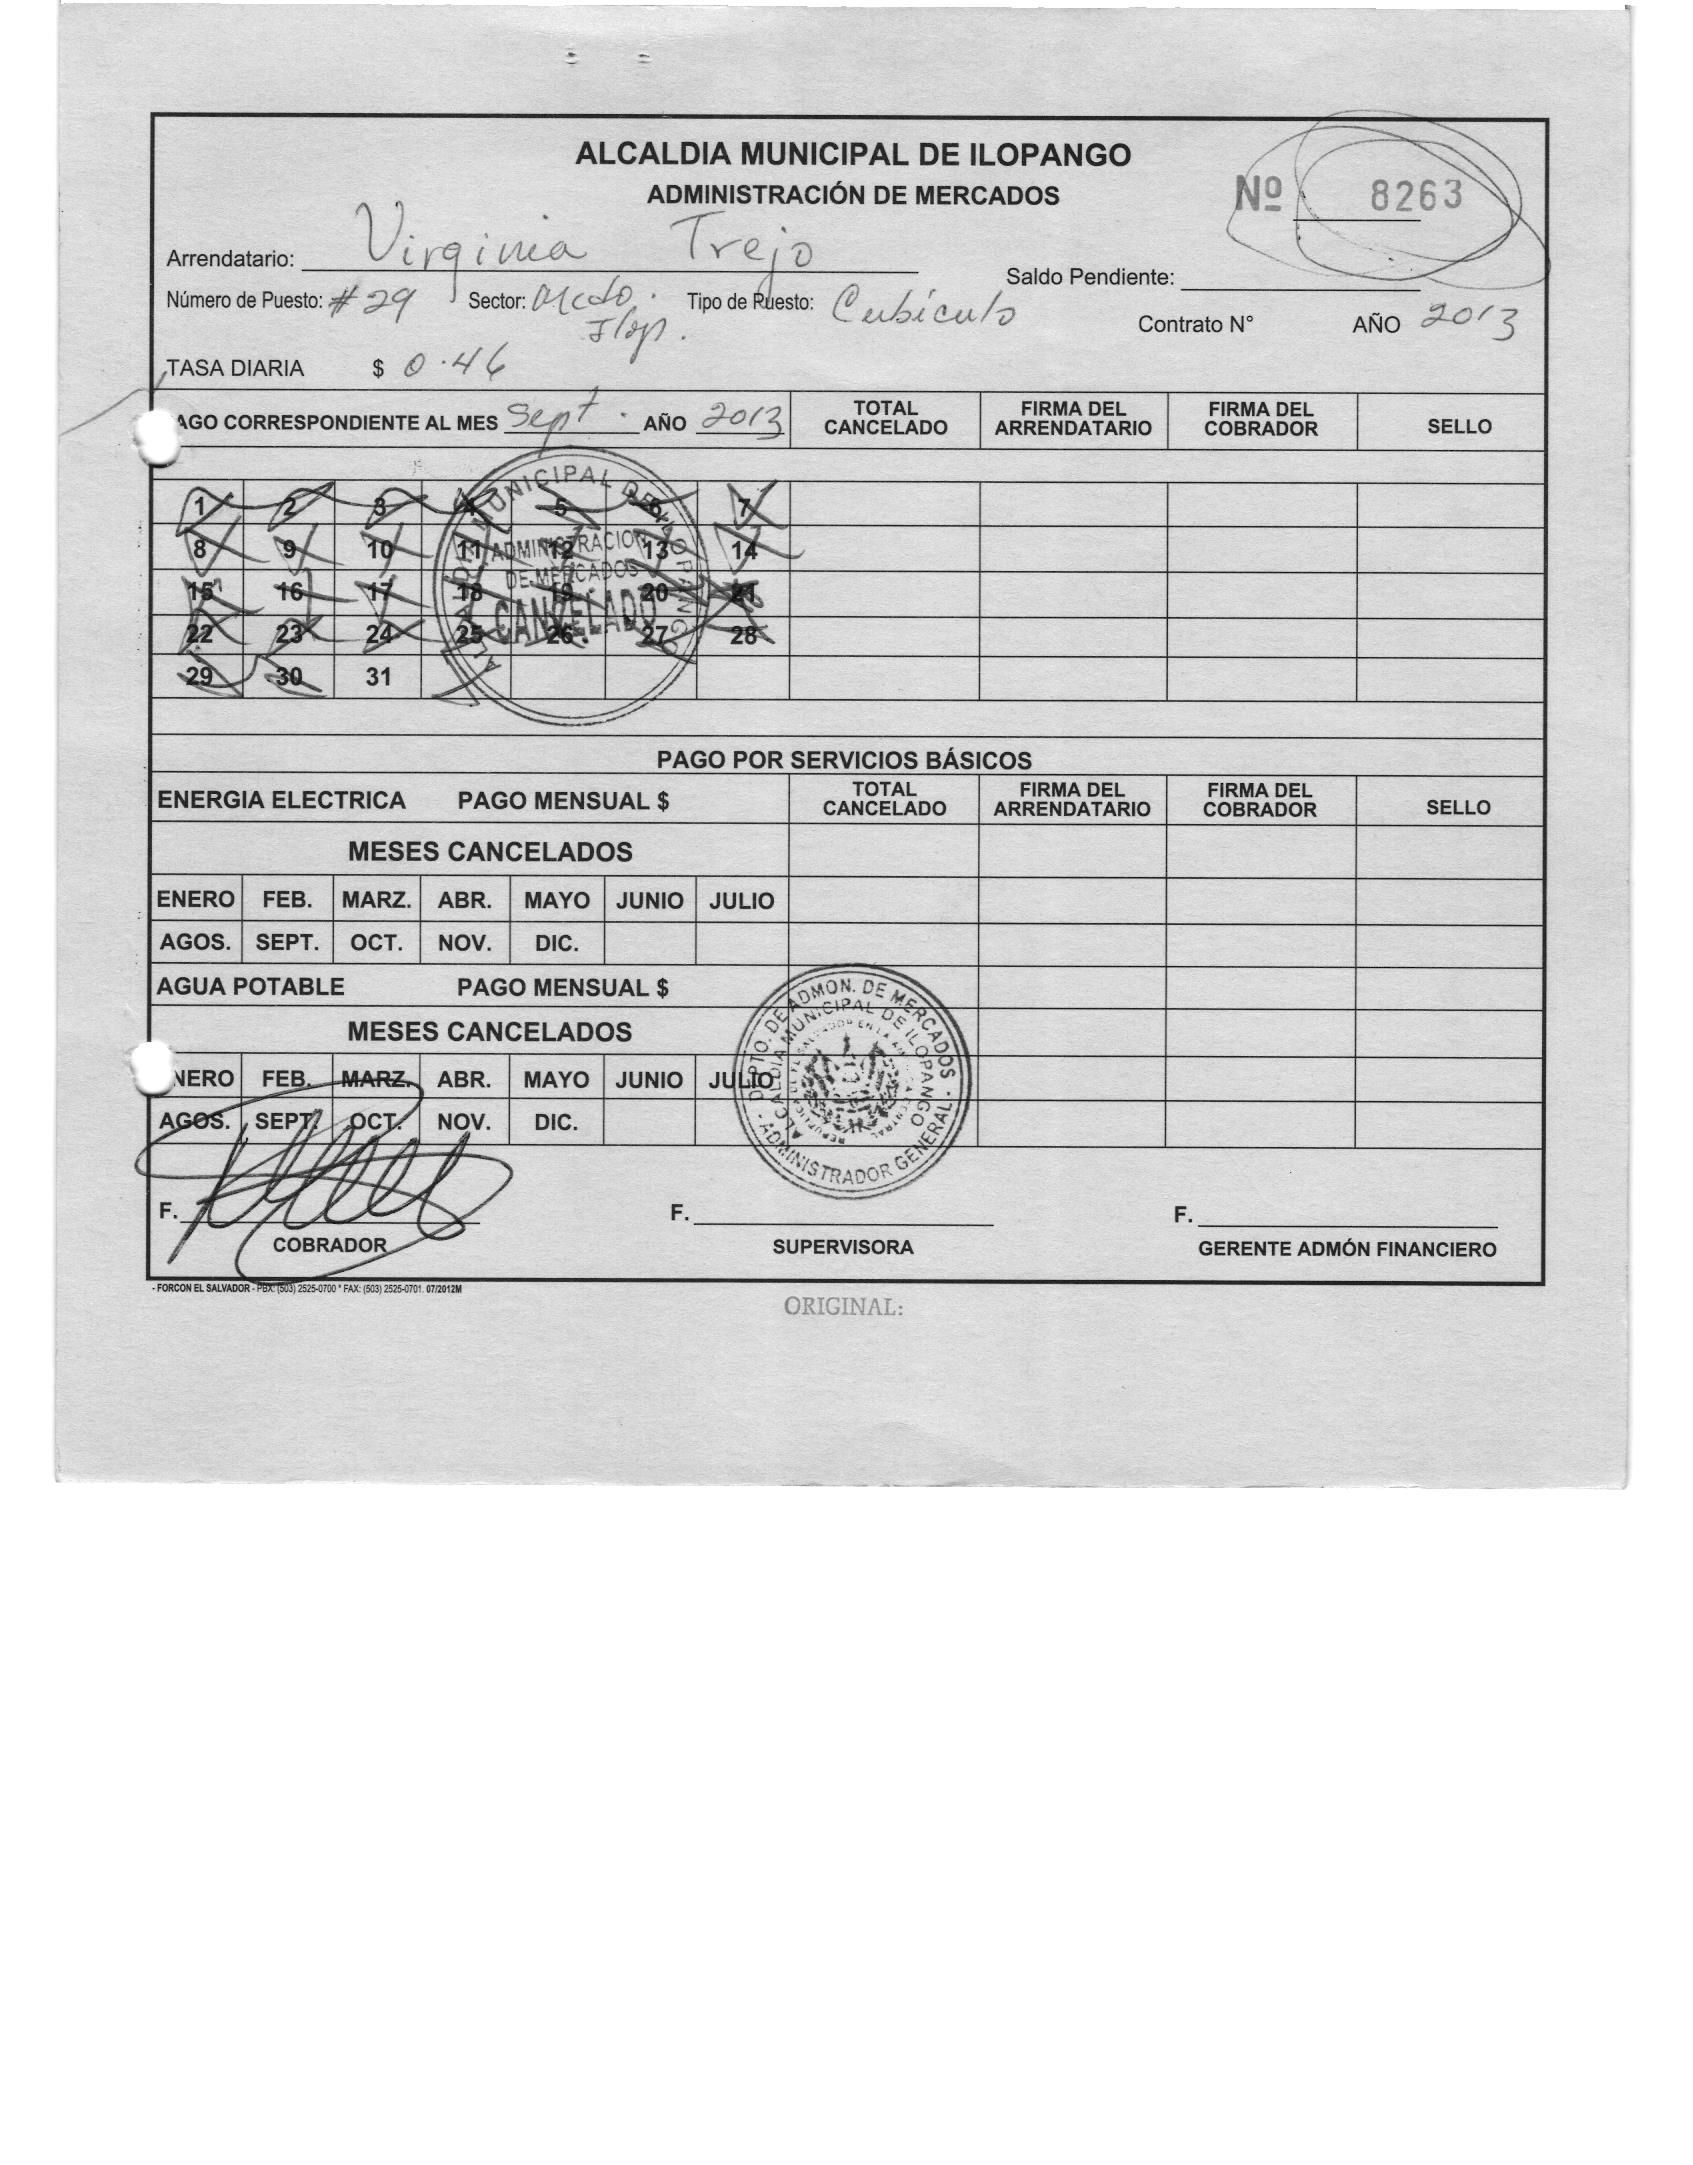 ALCALDIA MUNICIPAL DE ILOPANGO
ADMINISTRACIÓN DE MERCADOS
Nº 8263
Arrendatario: Virginia Trejo
Saldo Pendiente:
Número de Puesto: #29 Sector: Mcdo. Ilop. Tipo de Puesto: Cubículo
Contrato N° AÑO 2013
TASA DIARIA $ 0.46
AGO CORRESPONDIENTE AL MES Sept. AÑO 2013 TOTAL CANCELADO FIRMA DEL ARRENDATARIO FIRMA DEL COBRADOR SELLO
1 2 3 4 5 6 7
8 9 10 11 12 13 14
15 16 17 18 19 20 21
22 23 24 25 26 27 28
29 30 31
ALCALDIA MUNICIPAL DE ILOPANGO
ADMINISTRACION
DE MERCADOS
CANCELADO
PAGO POR SERVICIOS BÁSICOS
ENERGIA ELECTRICA PAGO MENSUAL $ TOTAL CANCELADO FIRMA DEL ARRENDATARIO FIRMA DEL COBRADOR SELLO
MESES CANCELADOS
ENERO FEB. MARZ. ABR. MAYO JUNIO JULIO
AGOS. SEPT. OCT. NOV. DIC.
AGUA POTABLE PAGO MENSUAL $
MESES CANCELADOS
NERO FEB. MARZ. ABR. MAYO JUNIO JULIO
AGOS. SEPT. OCT. NOV. DIC.
DEPTO. DE ADMON. DE MERCADOS
ALCALDIA MUNICIPAL DE ILOPANGO
REPUBLICA DE EL SALVADOR EN LA AMERICA CENTRAL
- ADMINISTRADOR GENERAL -
F. F. F.
COBRADOR SUPERVISORA GERENTE ADMÓN FINANCIERO
- FORCON EL SALVADOR - PBX: (503) 2525-0700 * FAX: (503) 2525-0701. 07/2012M
ORIGINAL: